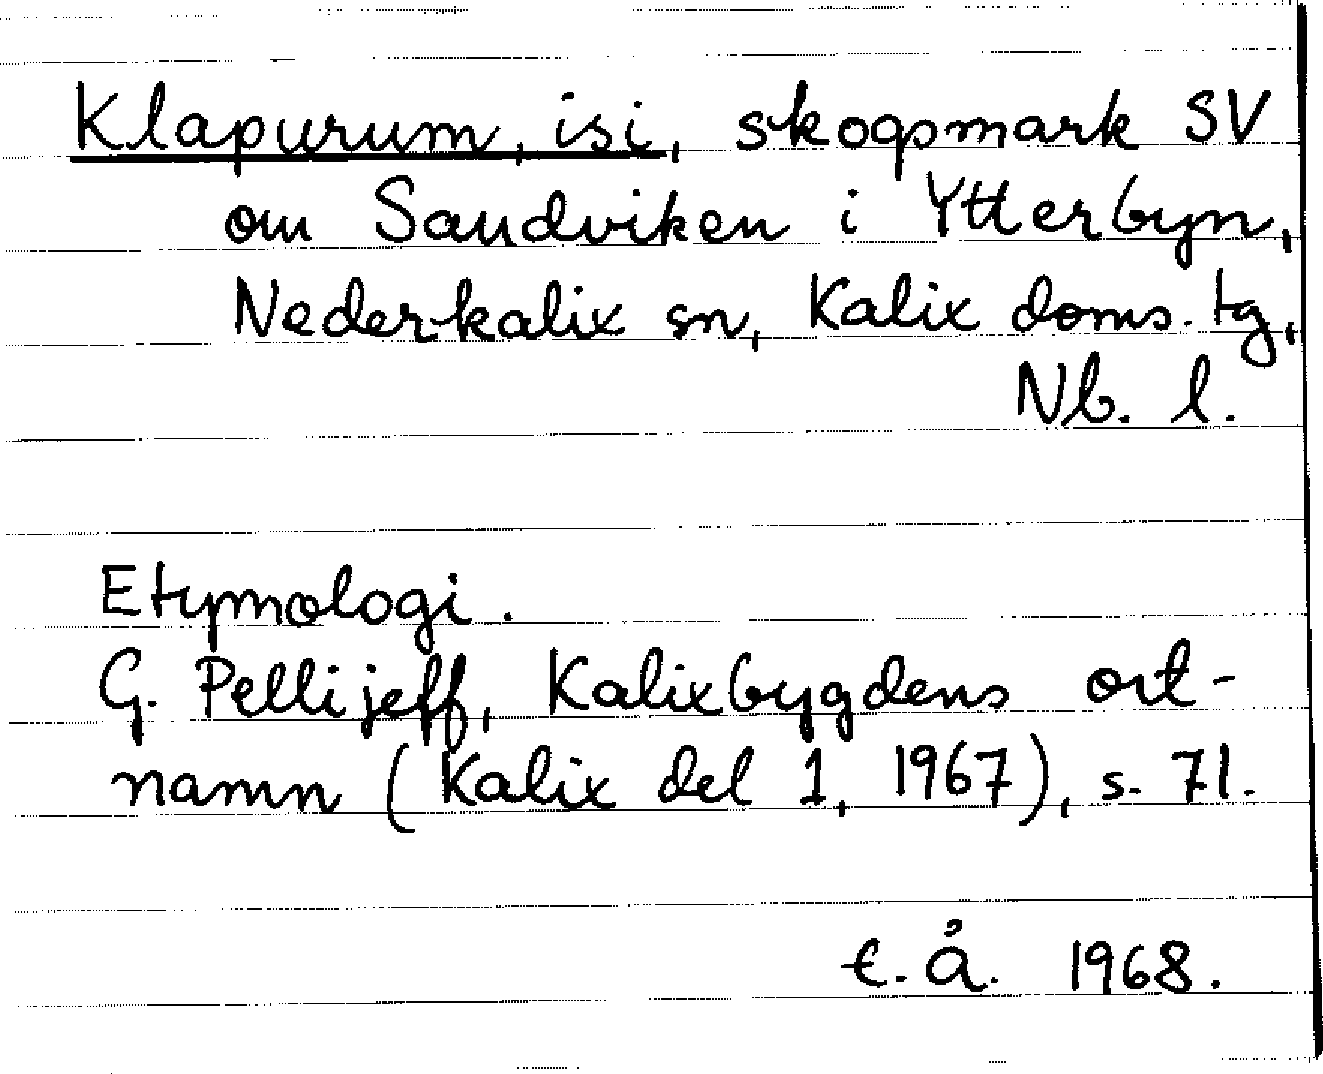 Klapurum, isi, skogsmark SV
om Sandviken i Ytterbyn,
Nederkalix sn, Kalix doms. tg,
Nb. l.
Etymologi.
G. Pellijeff, Kalixbygdens ort-
namn (Kalix del 1, 1967), s. 71.
E. Å. 1968.